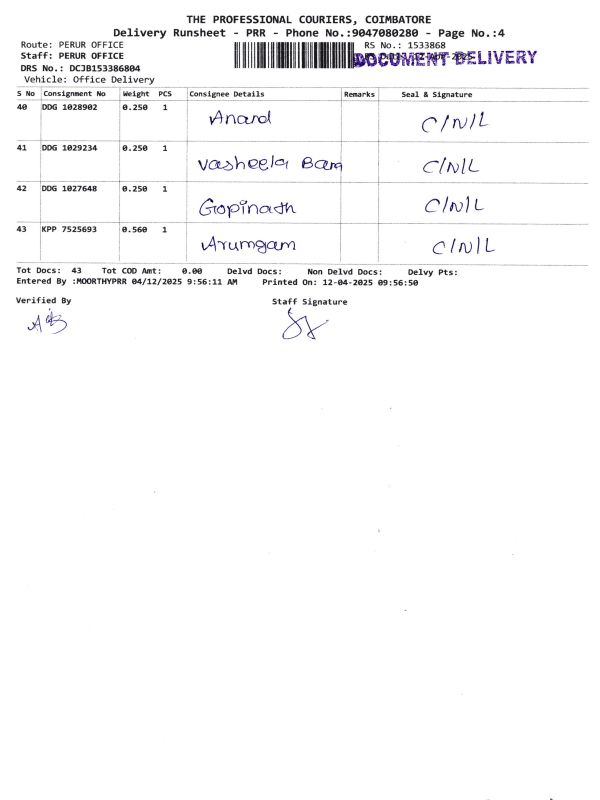 THE PROFESSIONAL COURIERS, COIMBATORE
Delivery Runsheet - PRR - Phone No.:9047080280 - Page No.:4
Route: PERUR OFFICE
RS No.: 1533868
Staff: PERUR OFFICE
DOCUMENT DELIVERY
DRS No.: DCJB153386804
Vehicle: Office Delivery
S No Consignment No Weight PCS Consignee Details Remarks Seal & Signature
40 DDG 1028902 0.250 1 Anand C/N/L
41 DDG 1029234 0.250 1 Vasheela C/N/L
42 DDG 1027648 0.250 1 Gopinath C/N/L
43 KPP 7525693 0.560 1 Arumgam C/N/L
Tot Docs: 43 Tot COD Amt: 0.00 Delvd Docs: Non Delvd Docs: Delvy Pts:
Entered By :MOORTHYPRR 04/12/2025 9:56:11 AM Printed On: 12-04-2025 09:56:50
Verified By Staff Signature